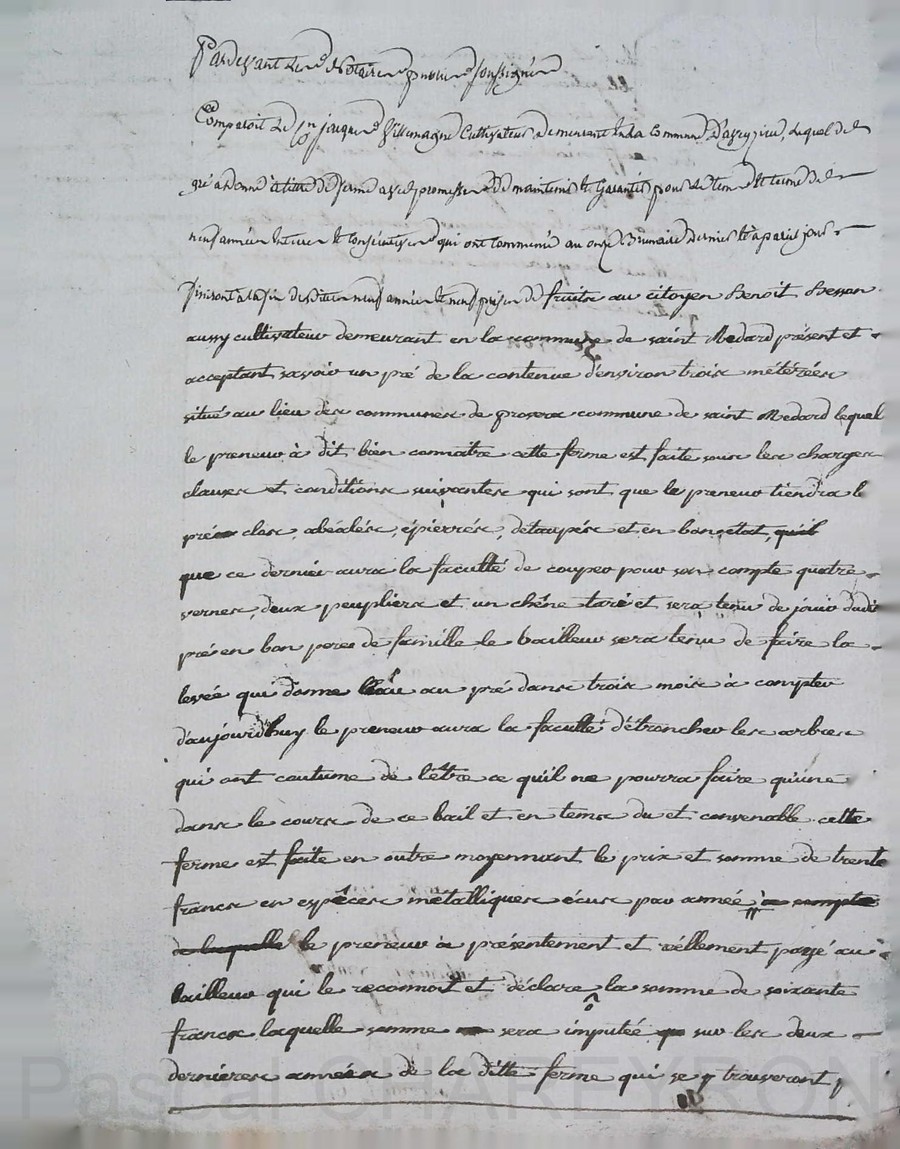 Pardevant les Notaires publics soussignés
Comparoit le Cen jacques Villemagne Cultivateur demeurant en la Commune D'aveyzieu, Lequel de
gré a donné à titre de ferme avec promesse de maintenir et Garantir pour le tems et terme de
neuf années entieres et Consécutives qui ont Commencé au onze Brumaire dernier et à pareil jour
finiront à la fin desdites neuf années et neuf prises de fruits au citoyen Benoit Besson
aussy cultivateur demeurant en la commune de saint Medard présent et
acceptant savoir un pré de la contenue d'environ trois métérées
situé au lieu des communes de commune de saint Medard lequel
le preneur à dit bien connaitre cette ferme est faite sous les charges
clauses et conditions suivantes qui sont que le preneur tiendra le
pré clos, abealés, épierrés, détaupés et en bon état, quil
que ce dernier aura la faculté de couper pour son compte quatre
vernes, deux peupliers et un chêne taré et sera tenu de jouir dudit
pré en bon pere de famille le bailleur sera tenu de faire la
levée qui donne l'eau au pré dans trois mois à compter
d'aujourd'huy le preneur aura la faculté d'étroncher les arbres
qui ont coutume de l'être ce quil ne pourra faire qu'une
dans le cours de ce bail et en tems du et convenable cette
ferme est faite en outre moyennant le prix et somme de trente
francs en espêces métalliques écus par année à compte
de laquelle le preneur à présentement et réellement payé au
bailleur qui le reconnoit et déclare la somme de soixante
francs laquelle somme sera imputée sur les deux
dernieres années de la ditte ferme qui se y trouveront,
Pascal CHAREYRON